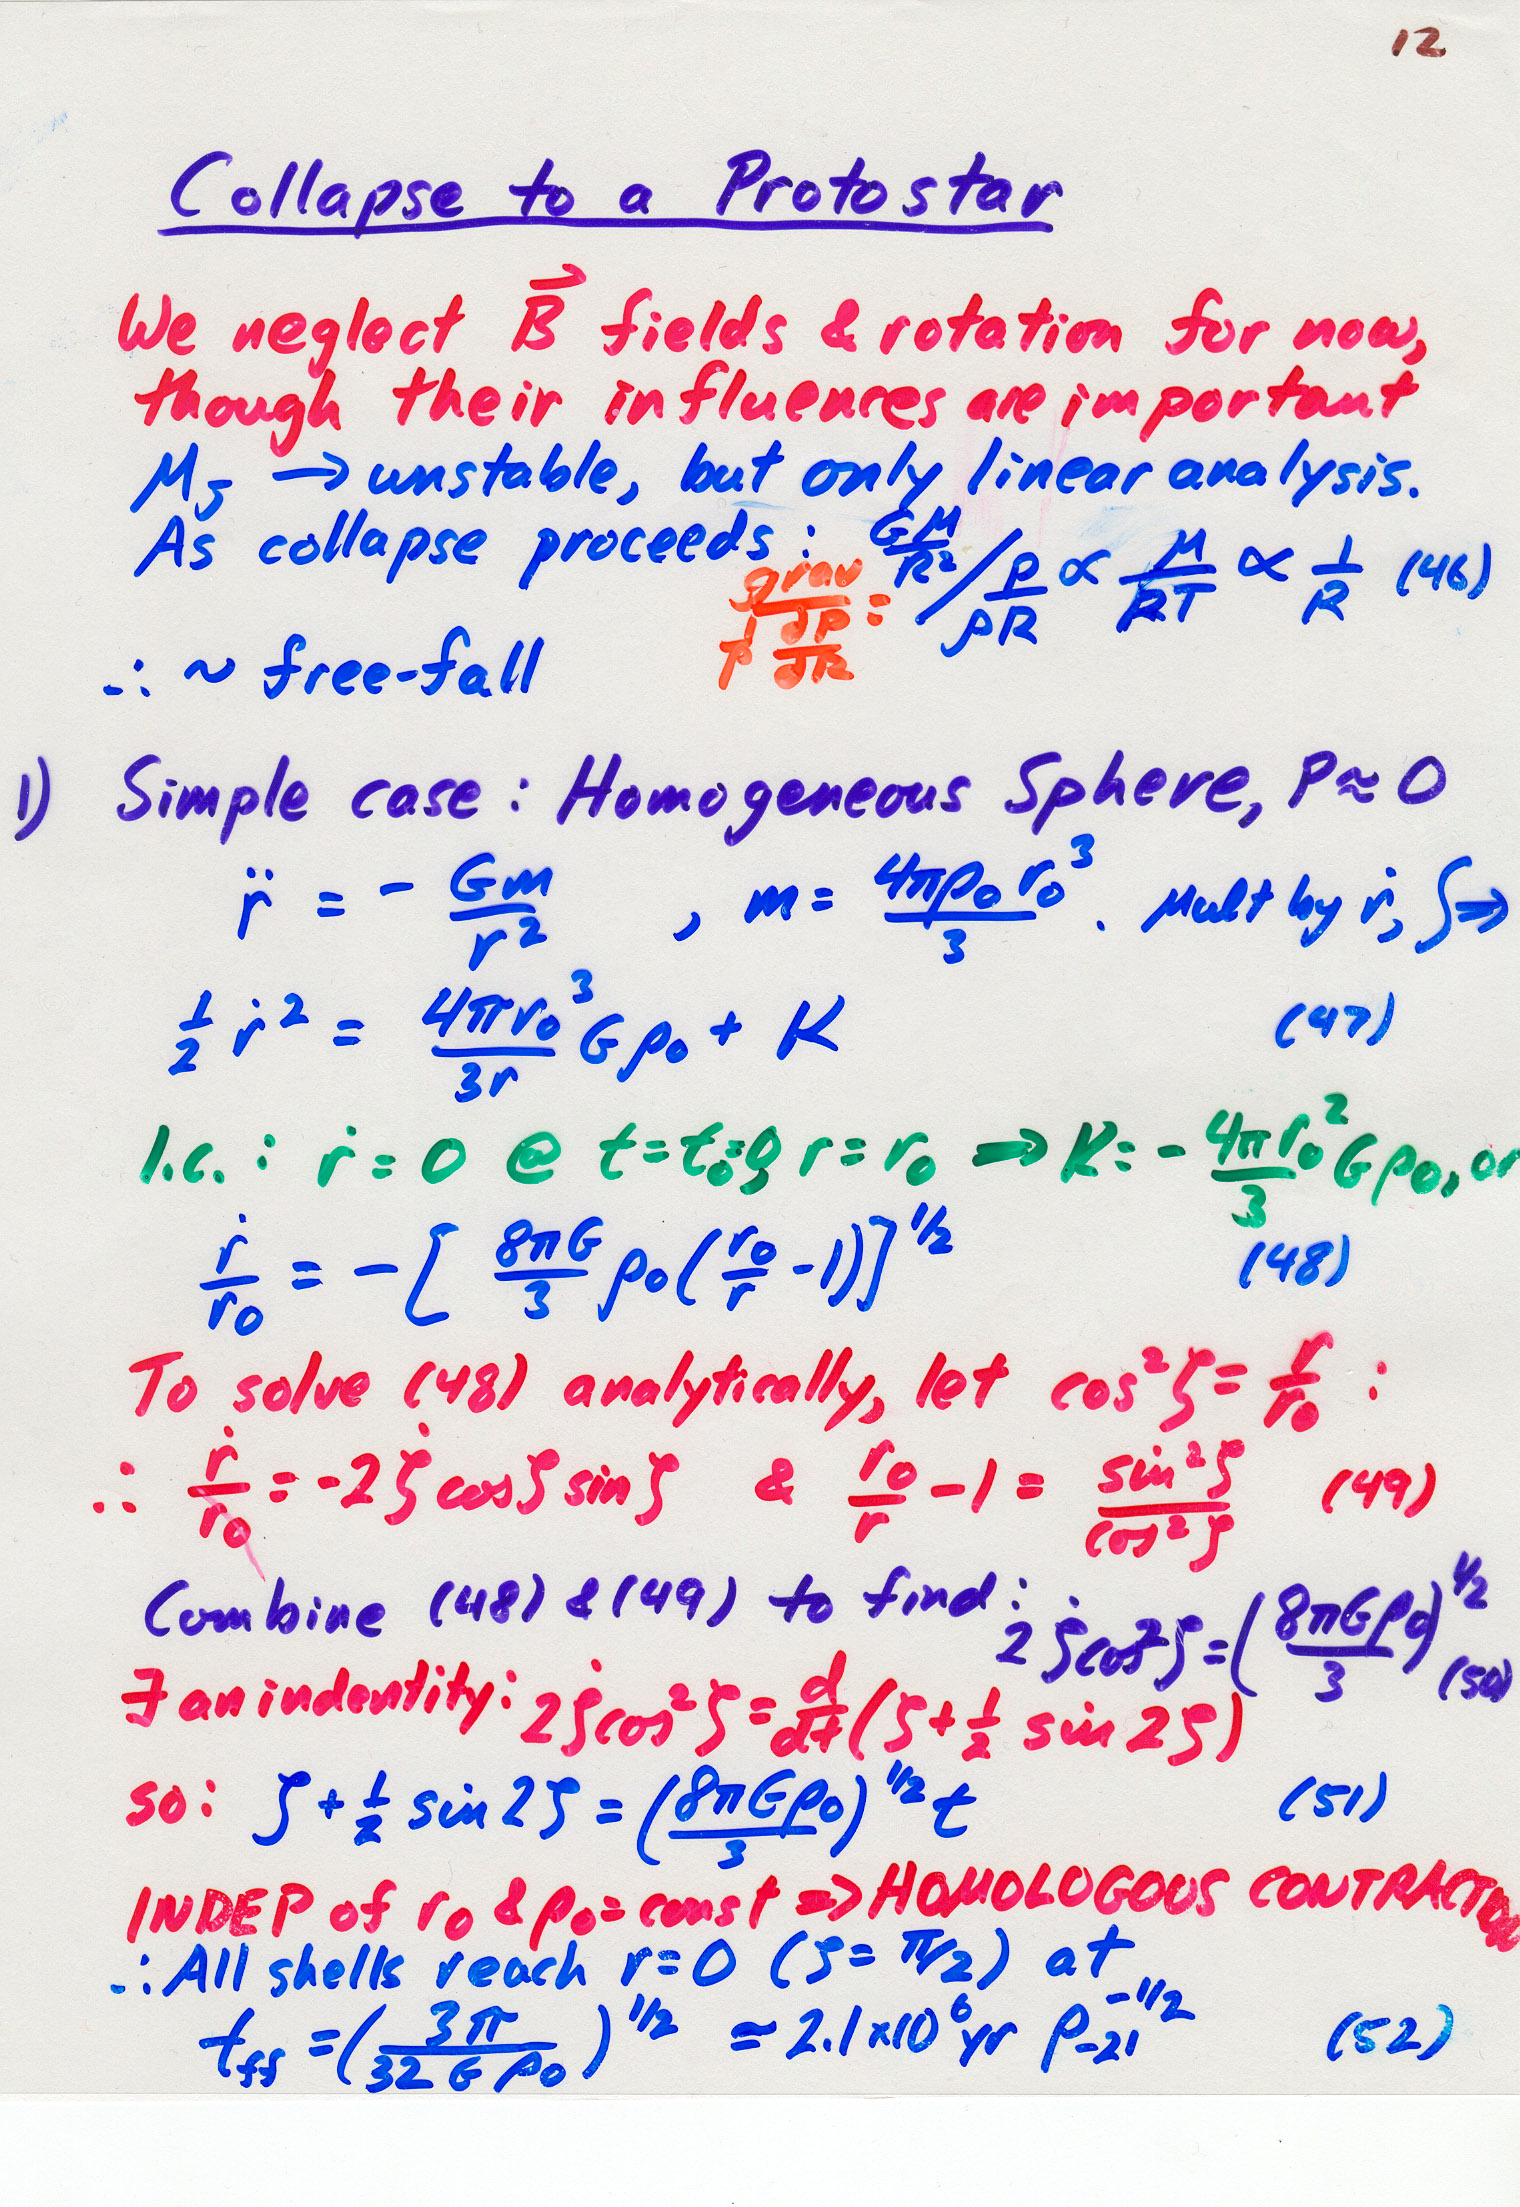 12
Collapse to a Protostar
We neglect B⃗ fields & rotation for now,
though their influences are important
M_J → unstable, but only linear analysis.
As collapse proceeds: GM/R² / P/ρR ∝ M/RT ∝ 1/R (46)
grav / 1/ρ ∂P/∂R =
∴ ~ free-fall
1) Simple case: Homogeneous Sphere, P≈0
r̈ = - Gm/r² , m = 4πρ₀r₀³/3 . Mult by ṙ, ∫⇒
1/2 ṙ² = 4πr₀³/3r Gρ₀ + K (47)
I.c.: ṙ=0 @ t=t₀=0, r=r₀ ⇒ K= - 4πr₀²/3 Gρ₀, or
ṙ/r₀ = -[ 8πG/3 ρ₀(r₀/r -1)]^1/2 (48)
To solve (48) analytically, let cos²ζ = r/r₀ :
∴ ṙ/r₀ = -2ζ̇ cosζ sinζ & r₀/r -1 = sin²ζ/cos²ζ (49)
Combine (48) & (49) to find: 2ζ̇cos²ζ = (8πGρ₀/3)^1/2 (50)
∃ an indentity: 2ζ̇cos²ζ = d/dt(ζ + 1/2 sin 2ζ)
so: ζ + 1/2 sin 2ζ = (8πGρ₀/3)^1/2 t (51)
INDEP of r₀ & ρ₀=const ⇒ HOMOLOGOUS CONTRACTION
∴ All shells reach r=0 (ζ= π/2) at
t_ff = (3π/32Gρ₀)^1/2 ≃ 2.1×10⁶ yr ρ₋₂₁^-1/2 (52)